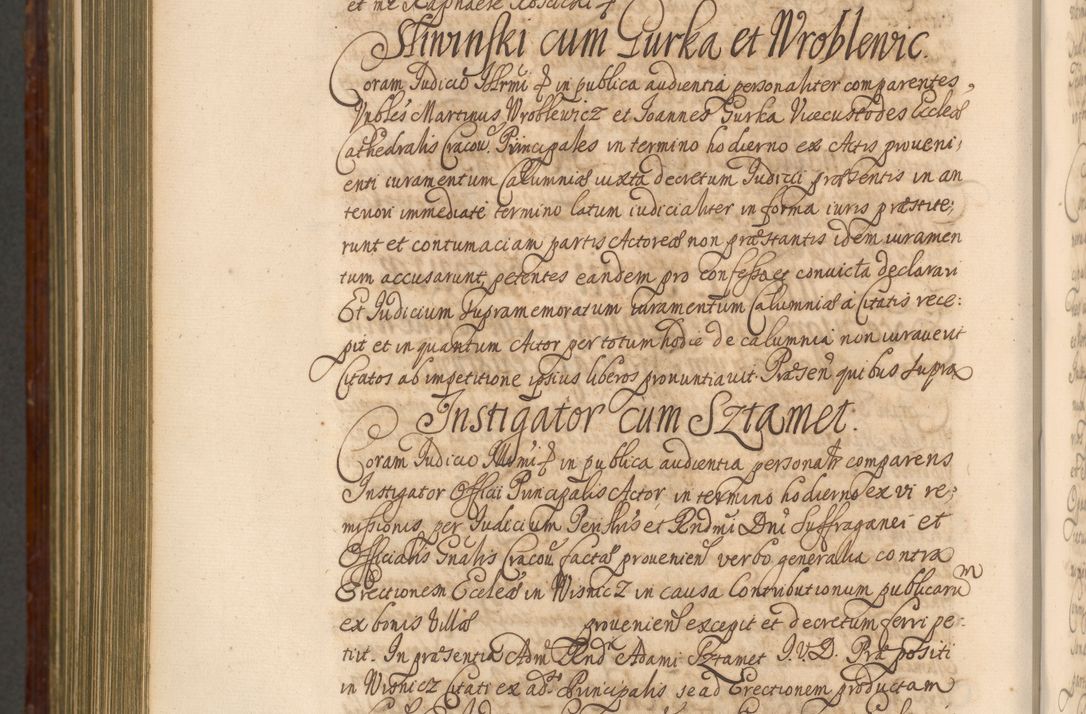 et me Raphaele
Sliwinski cum Gurka et Wroblewic.
Coram Judicio Illrmi in publica audientia personaliter comparentes,
Vnbles Martinus Wroblewicz et Joannes Gurka Vicecustodes Eccleæ
Cathedralis Cracou. Principales in termino hodierno ex Actis proueni,
enti iuramentum Calumniæ iuxta decretum Judicii præsentis in an
teriori immediate termino latum iudicialiter in forma iuris præstite,
runt et contumaciam partis Actoreæ non præstantis idem iuramen
tum accusarunt, petentes eandem pro confessa et convicta declarari
Et Judicium supramemoratum iuramentum Calumniæ a Citatis rece:
pit et in quantum Actor per totum hodie de calumnia non iurauerit
Citatos ab impetitione ipsius liberos pronuntiauit. Præsen quibus supra
Instigator cum Sztamet.
Coram Judicio Illrmi in publica audientia personalr comparens
Instigator Officii Principalis Actor, in termino hodierno ex vi re,
missionis per Judicium Perillris et Rndmi Dni Suffraganei et
Officialis Gnalis Cracou factæ prouenien verbo generalia contra
Erectionem Eccleæ in Wisnicz in causa Contributionum publicarum
ex bonis Villæ prouenien excepit et decretum ferri pe-
tiit. In præsentia Adm Rndi Adami Sztamet J.V.D. Præpositi
in Wisnicz Citati ex ads Principalis se ad Erectionem productam